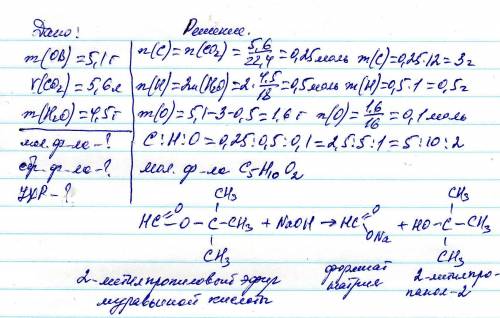 Дано:
m(ОВ)=5,1г
V(CO₂)=5,6л
m(H₂O)=4,5г
мол. ф-ла-?
стр. ф-ла-?
УХР-?
Решение.
n(C)=n(CO₂)=5,6/22,4=0,25моль m(C)=0,25·12=3г
n(H)=2n(H₂O)=2·4,5/18=0,5моль m(H)=0,5·1=0,5г
m(O)=5,1-3-0,5=1,6г n(O)=1,6/16=0,1моль
C:H:O=0,25:0,5:0,1=2,5:5:1=5:10:2
мол. ф-ла C₅H₁₀O₂
CH₃ CH₃
HC=O-O-C-CH₃ + NaOH → HC=O ONa + HO-C-CH₃
CH₃ CH₃
2-метилпропиловый эфир муравьиной кислоты
формиат натрия
2-метилпропанол-2